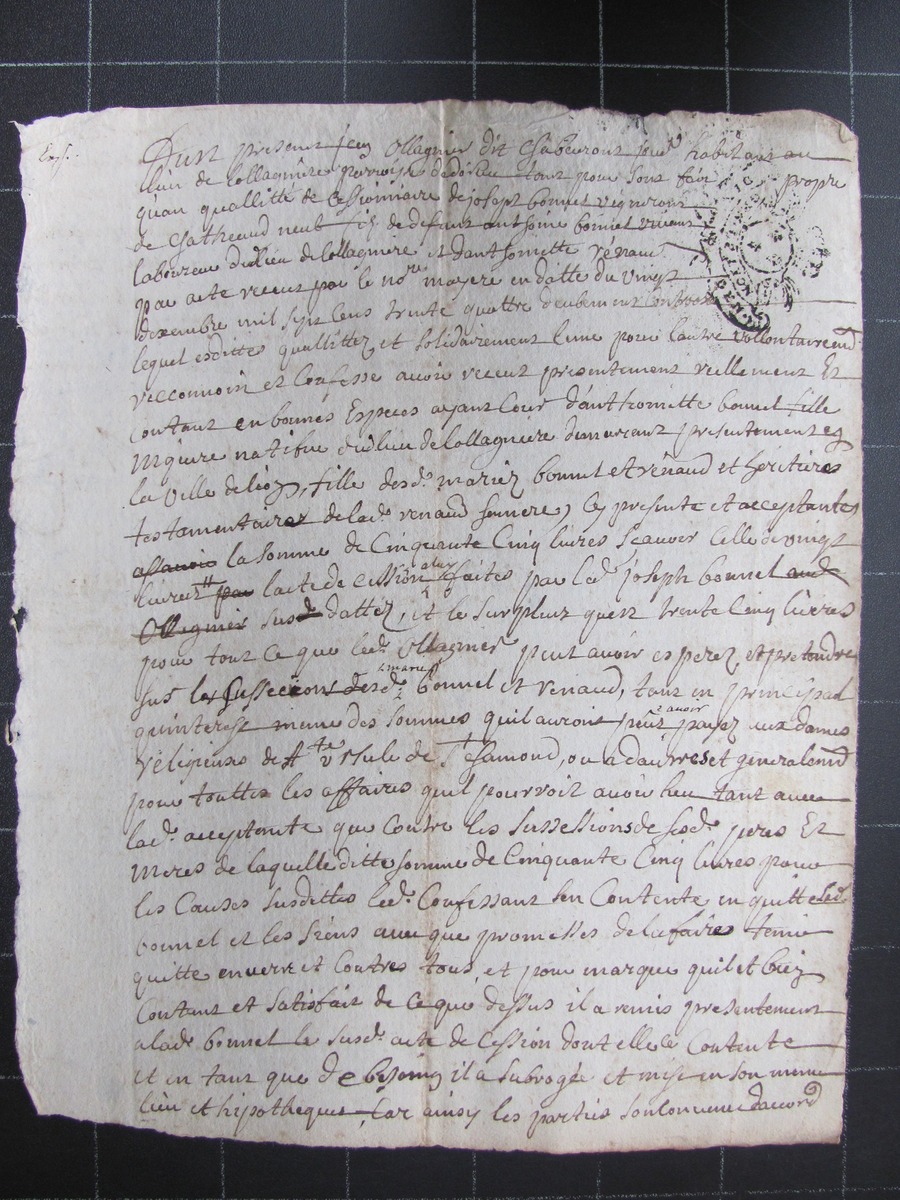 Exp.
Fust present jean Ollagnier dit Chabourou jour habitant au
lieu de lollagniere parroisse dedoizieu tant pour sont fait propre
quan quallitté de cessionnaire de joseph bonnel vigneron
de Chatheaud neuf fils de deffunt anthoine bonnel vivant
laboureur dudlieu de lollagniere et danthomette rénaud
par acte receut par le nore mayere en datte du vingt
dexembre mil sept cens trente quattre deubment
lequel esdittes quallittez et solidairement lune pour lautre vollontairemd
recconnoit et Confesse avoir receut presentement reellement Et
contant en bonnes Especes ayant Cour d'anthomette bonnel fille
Majeure natifue dudlieu de lollagniere demeurant presentement en
la ville de lion, fille desd. mariez bonnel et rénaud et heritiere
testamentaire de lad. renaud sa mere, cy presente et acceptante
assavoir la somme de Cinquante Cinq livres Scauoir Celle de vingt
livres par lacte de cession a luy faites par led. joseph bonnel
Ollagnier susd. dattéz, et le surplus quest trente Cinq livres
pour tout Ce que led. Ollagnier peut avoir esperez et pretendre
sur les Sussecions desd. mariez bonnel et renaud, tant en principal
quinterest meme des sommes quil auroit peut avoir payez aux dames
réligieuses de Ste ursule de St Chamond, ou a dautres et generalemd
pour touttes les affaires quil pourroit avoir heu tant avec
lad. acceptante que Contre les sussessions de sesd. peres Et
Meres de laquelle ditte somme de Cinquante Cinq livres pour
les Causes susdittes led. Confessant sen Contente en quitte lad.
bonnel et les siens avec que promesses de la faire tenir
quitte enverre et Contres tous, et pour marque quil et bien
Contant et satisfait de Ce que dessus il a remis presentement
a lad. bonnel le susd. acte de Cession dont elle Contente
et en tant que de besoing il a subrogée et mise en son meme
lieu et hipotheques Car ainsy les parties sont Convenu daccord